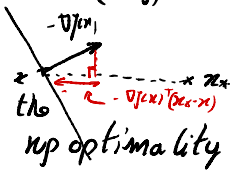 -∇f(x)
x x*
-∇f(x)ᵀ(x*-x)
the
np optimality